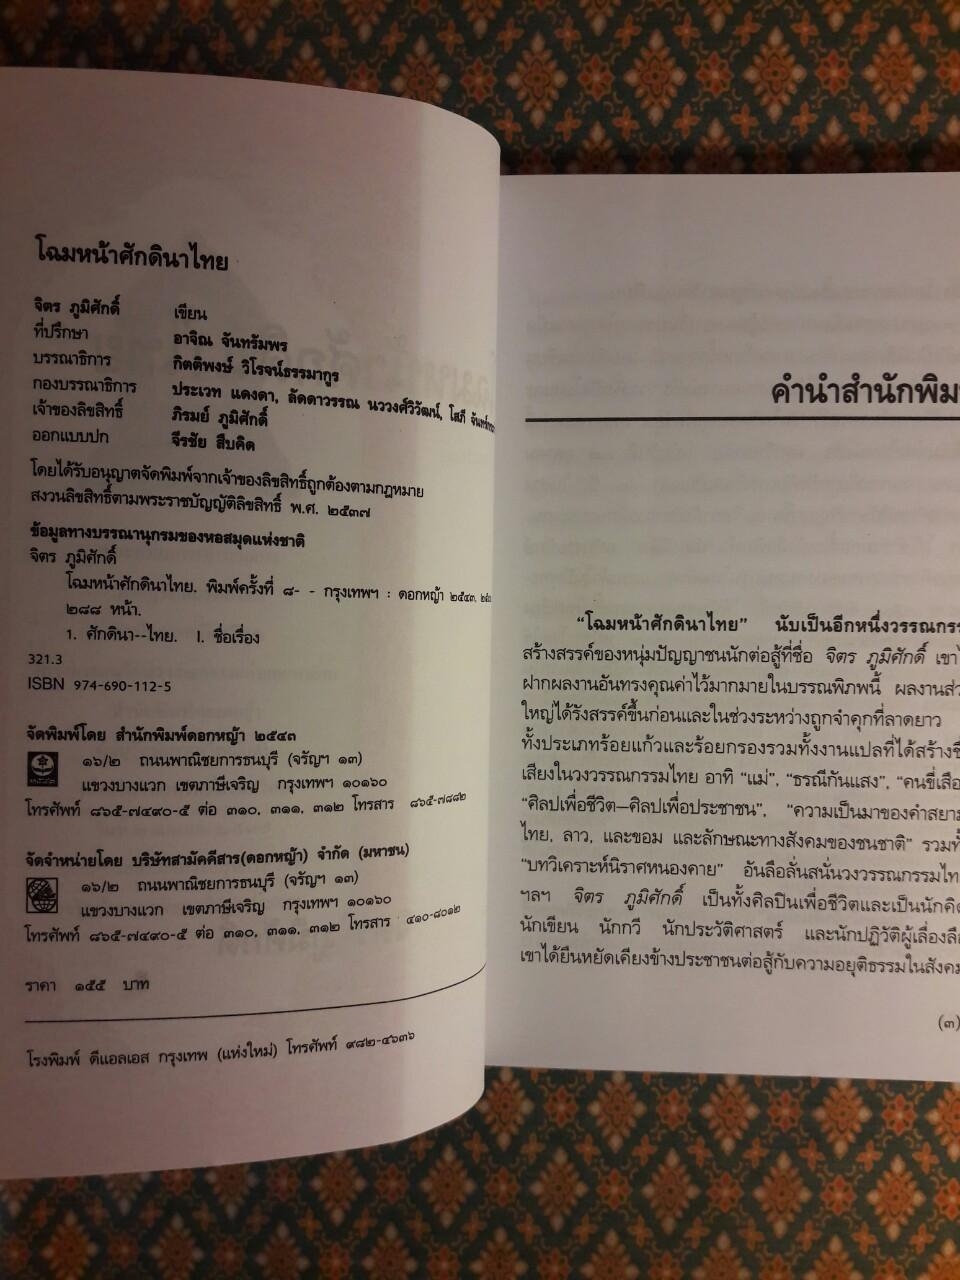 โฉมหน้าศักดินาไทย
จิตร ภูมิศักดิ์ เขียน
ที่ปรึกษา อาจิณ จันทรัมพร
บรรณาธิการ กิตติพงษ์ วิโรจน์ธรรมากูร
กองบรรณาธิการ ประเวท แดงดา, ลัดดาวรรณ นววงศ์วิวัฒน์, โสภี
เจ้าของลิขสิทธิ์ ภิรมย์ ภูมิศักดิ์
ออกแบบปก จีรชัย สืบคิด
โดยได้รับอนุญาตจัดพิมพ์จากเจ้าของลิขสิทธิ์ถูกต้องตามกฎหมาย
สงวนลิขสิทธิ์ตามพระราชบัญญัติลิขสิทธิ์ พ.ศ. ๒๕๓๗
ข้อมูลทางบรรณานุกรมของหอสมุดแห่งชาติ
จิตร ภูมิศักดิ์
โฉมหน้าศักดินาไทย. พิมพ์ครั้งที่ ๘- - กรุงเทพฯ : ดอกหญ้า ๒๕๔๓,
๒๘๘ หน้า.
๑. ศักดินา--ไทย. I. ชื่อเรื่อง
321.3
ISBN 974-690-112-5
จัดพิมพ์โดย สำนักพิมพ์ดอกหญ้า ๒๕๔๓
๑๖/๒ ถนนพาณิชยการธนบุรี (จรัญฯ ๑๓)
แขวงบางแวก เขตภาษีเจริญ กรุงเทพฯ ๑๐๑๖๐
โทรศัพท์ ๘๖๕-๗๔๙๐-๕ ต่อ ๓๑๐, ๓๑๑, ๓๑๒ โทรสาร ๘๖๕-๗๘๘๒
จัดจำหน่ายโดย บริษัทสามัคคีสาร(ดอกหญ้า) จำกัด (มหาชน)
๑๖/๒ ถนนพาณิชยการธนบุรี (จรัญฯ ๑๓)
แขวงบางแวก เขตภาษีเจริญ กรุงเทพฯ ๑๐๑๖๐
โทรศัพท์ ๘๖๕-๗๔๙๐-๕ ต่อ ๓๑๐, ๓๑๑, ๓๑๒ โทรสาร ๔๑๐-๘๐๑๒
ราคา ๑๕๕ บาท
โรงพิมพ์ ดีแอลเอส กรุงเทพ (แห่งใหม่) โทรศัพท์ ๙๘๒-๔๖๓๖
คำนำสำนักพิม
“โฉมหน้าศักดินาไทย” นับเป็นอีกหนึ่งวรรณกรร
สร้างสรรค์ของหนุ่มปัญญาชนนักต่อสู้ที่ชื่อ จิตร ภูมิศักดิ์ เขาไ
ฝากผลงานอันทรงคุณค่าไว้มากมายในบรรณพิภพนี้ ผลงานส่ว
ใหญ่ได้รังสรรค์ขึ้นก่อนและในช่วงระหว่างถูกจำคุกที่ลาดยาว
ทั้งประเภทร้อยแก้วและร้อยกรองรวมทั้งงานแปลที่ได้สร้างชื่
เสียงในวงวรรณกรรมไทย อาทิ “แม่”, “ธรณีกันแสง”, “คนขี่เสือ
“ศิลปเพื่อชีวิต—ศิลปเพื่อประชาชน”, “ความเป็นมาของคำสยาม
ไทย, ลาว, และขอม และลักษณะทางสังคมของชนชาติ” รวมทั้
“บทวิเคราะห์นิราศหนองคาย” อันลือลั่นสนั่นวงวรรณกรรมไท
ฯลฯ จิตร ภูมิศักดิ์ เป็นทั้งศิลปินเพื่อชีวิตและเป็นนักคิด
นักเขียน นักกวี นักประวัติศาสตร์ และนักปฏิวัติผู้เลื่องลือ
เขาได้ยืนหยัดเคียงข้างประชาชนต่อสู้กับความอยุติธรรมในสังคม
(๓)